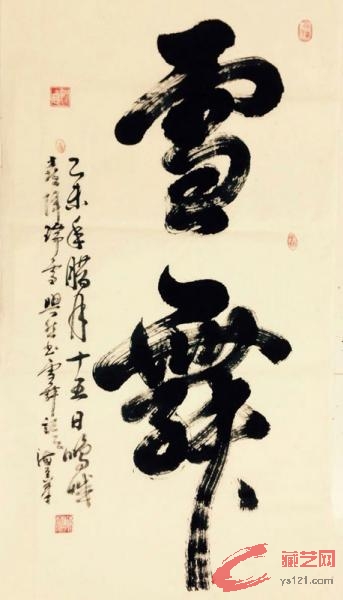 雪舞
乙未年腊月十五日鸣城
喜降瑞雪兴然书雪舞记之
藏艺网
ys121.com